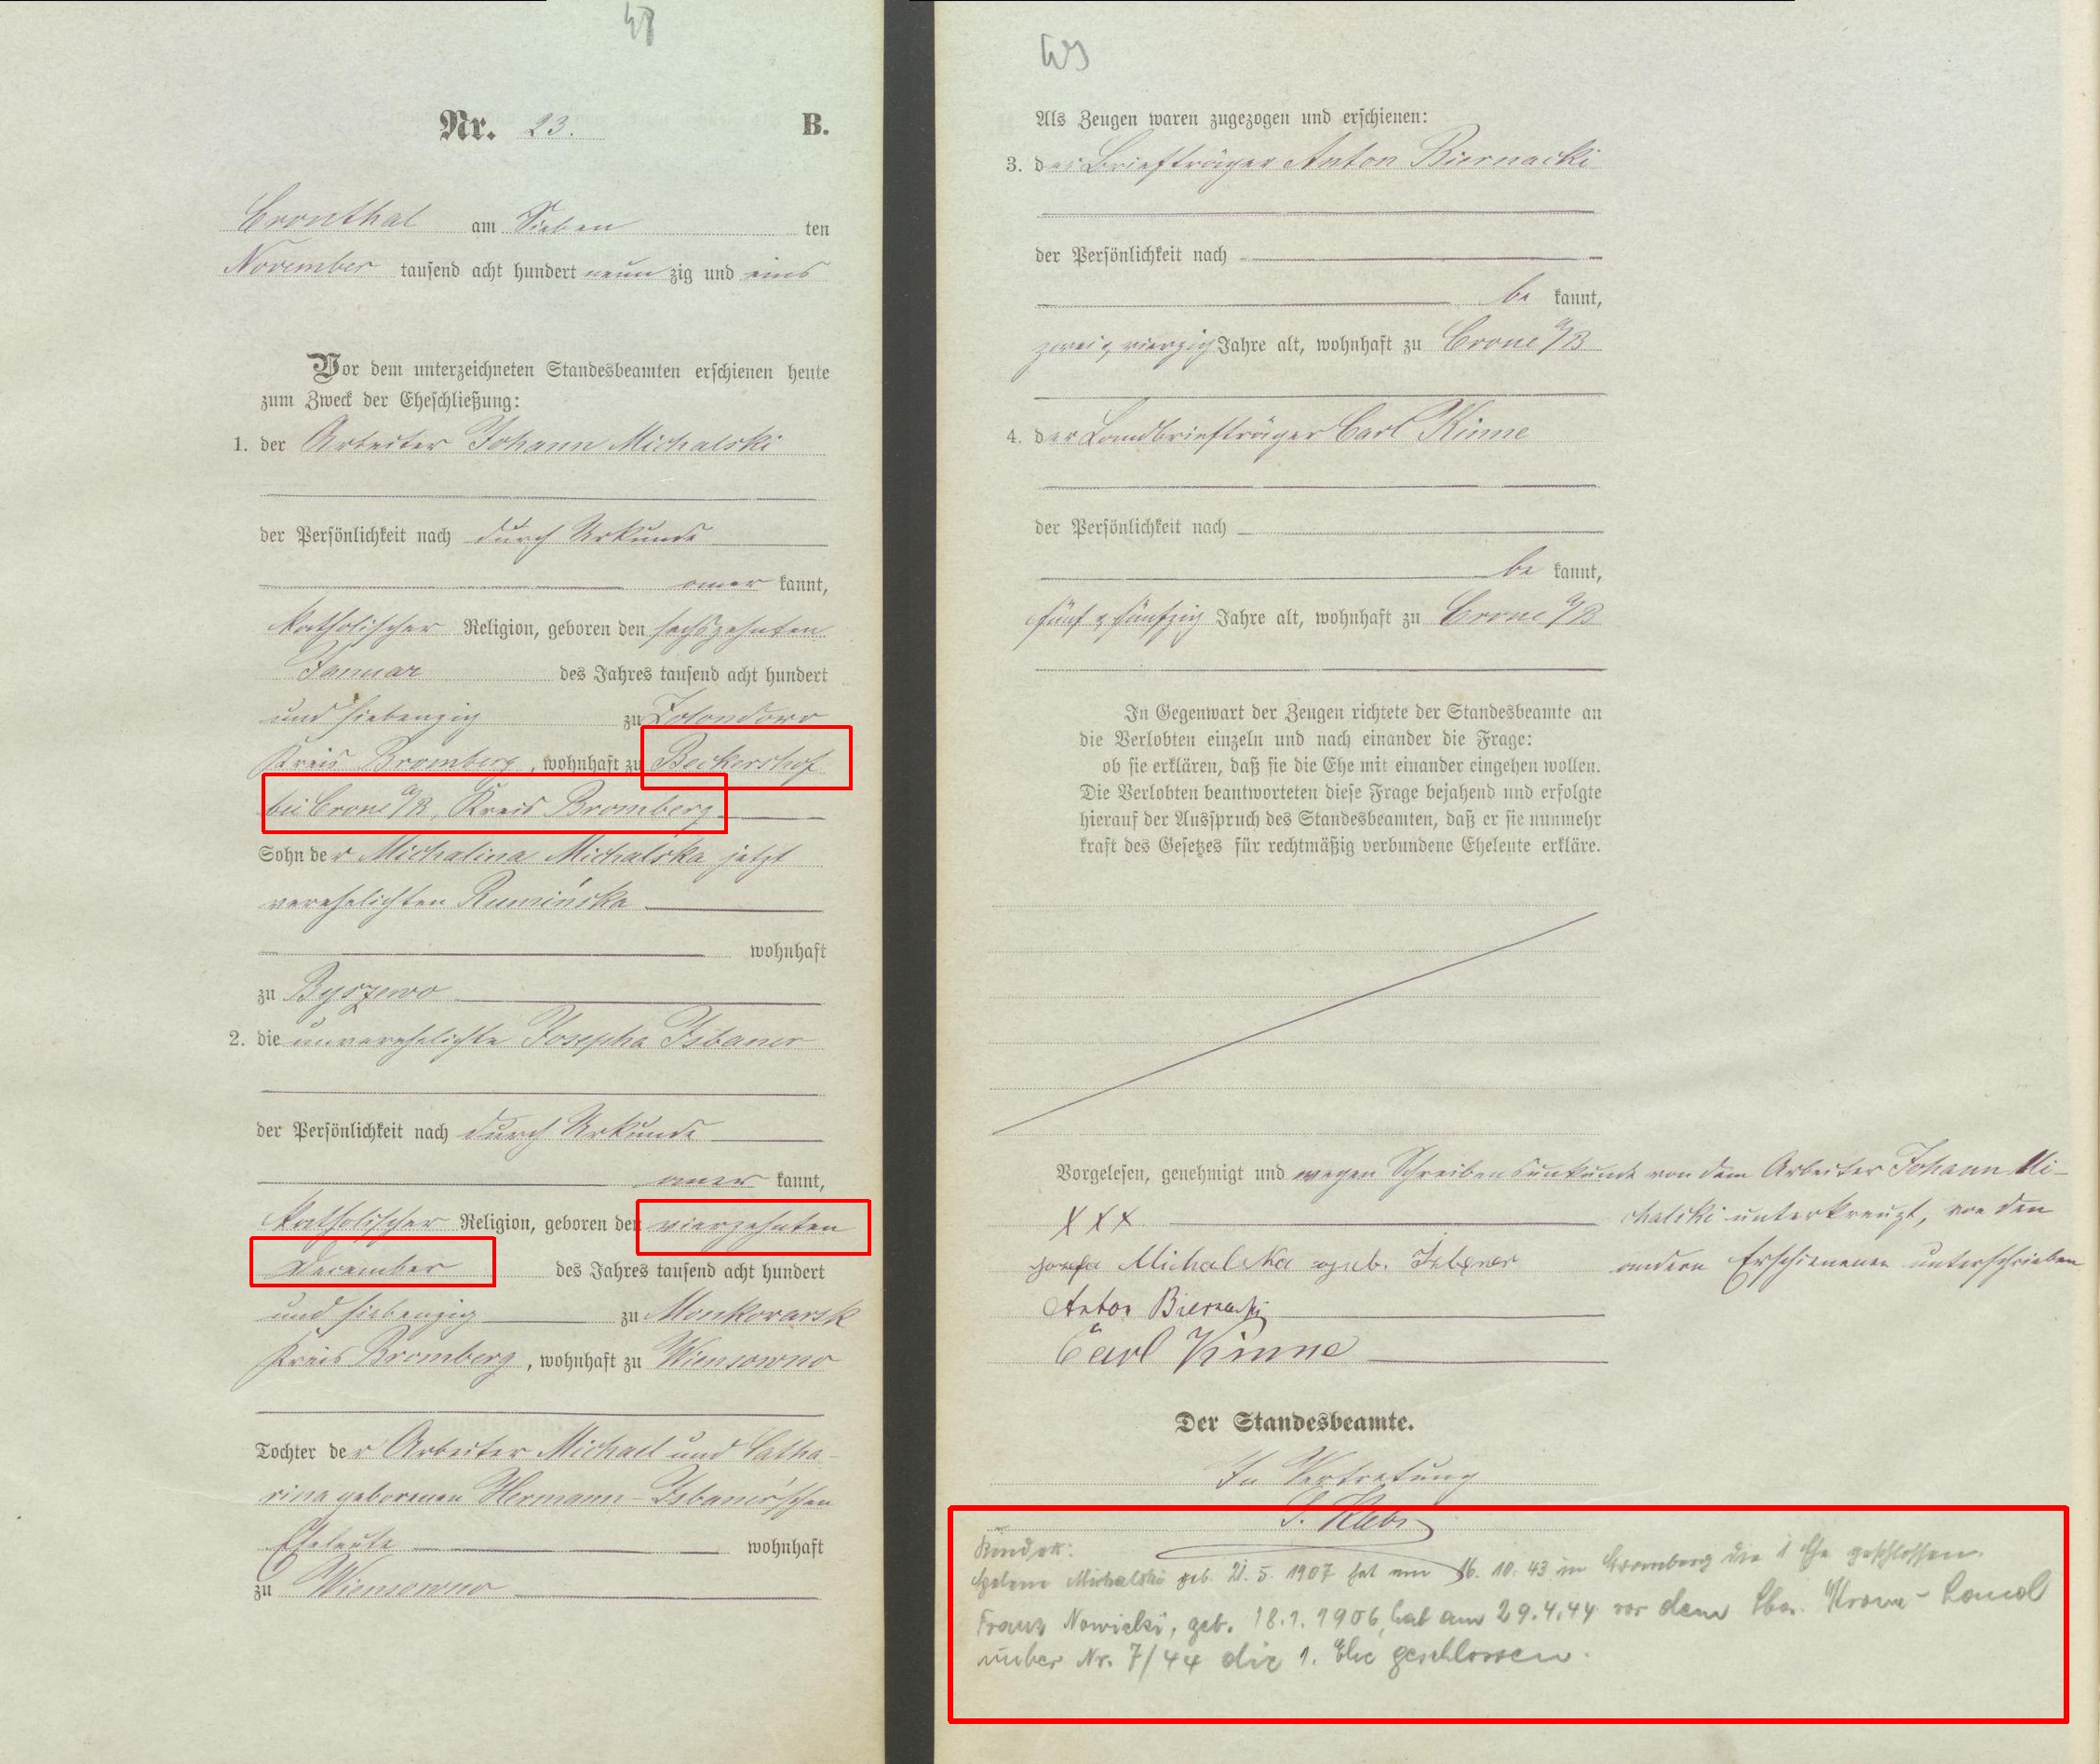 48
Nr. 23. B.
Cronthal am Sieben ten
November tausend acht hundert neun zig und eins
Vor dem unterzeichneten Standesbeamten erschienen heute
zum Zweck der Eheschließung:
1. der Arbeiter Johann Michalski
der Persönlichkeit nach durch Urkunde
aner kannt,
katholischer Religion, geboren den sechszehnten
Januar des Jahres tausend acht hundert
und siebenzig zu Zolondowo
Kreis Bromberg, wohnhaft zu Beckershof
bei Crone a/B, Kreis Bromberg
Sohn der Michalina Michalska jetzt
verehelichten Rumińska
wohnhaft
zu Byszewo
2. die unverehelichte Josepha Isbaner
der Persönlichkeit nach durch Urkunde
aner kannt,
katholischer Religion, geboren den vierzehnten
December des Jahres tausend acht hundert
und siebenzig zu Monkowarsk
Kreis Bromberg, wohnhaft zu Wiensowno
Tochter der Arbeiter Michael und Catha-
rina geborenen Hermann-Isbaner'schen
Eheleute wohnhaft
zu Wiensowno
Als Zeugen waren zugezogen und erschienen:
3. der Briefträger Anton Biernacki
der Persönlichkeit nach
be kannt,
zwei u vierzig Jahre alt, wohnhaft zu Crone a/B
4. der Landbriefträger Carl Kinne
der Persönlichkeit nach
be kannt,
fünf u fünfzig Jahre alt, wohnhaft zu Crone a/B
In Gegenwart der Zeugen richtete der Standesbeamte an
die Verlobten einzeln und nach einander die Frage:
ob sie erklären, daß sie die Ehe mit einander eingehen wollen.
Die Verlobten beantworteten diese Frage bejahend und erfolgte
hierauf der Ausspruch des Standesbeamten, daß er sie nunmehr
kraft des Gesetzes für rechtmäßig verbundene Eheleute erkläre.
Vorgelesen, genehmigt und wegen Schreibensunkunde von dem Arbeiter Johann Mi-
chalski unterkreuzt, von den
andern Erschienenen unterschrieben
XXX
Josefa Michalska geb. Isbaner
Anton Biernacki
Carl Kinne
Der Standesbeamte.
In Vertretung
Kinder:
Helene Michalski geb. 21. 5. 1907 hat am 16. 10. 43 in Bromberg die 1 Ehe geschlossen.
Franz Nowicki, geb. 18.1.1906, hat am 29.4.44 vor dem Sba. Krone-Land
unter Nr. 7/44 die 1. Ehe geschlossen.